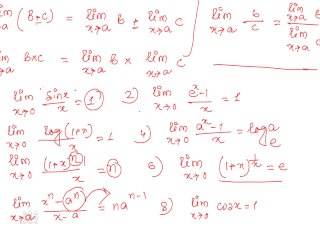 lim x→a (b±c) = lim x→a b ± lim x→a c
lim x→a b/c = lim x→a b / lim x→a c
lim x→a b×c = lim x→a b × lim x→a c
lim x→0 sinx/x = 1
2) lim x→0 e^x-1/x = 1
lim x→0 log(1+x)/x = 1
4) lim x→0 a^x-1/x = log a e
lim x→0 (1+x)^n-1/x = n
6) lim x→0 (1+x)^1/x = e
lim x→a x^n-a^n/x-a = na^n-1
8) lim x→0 cosx=1